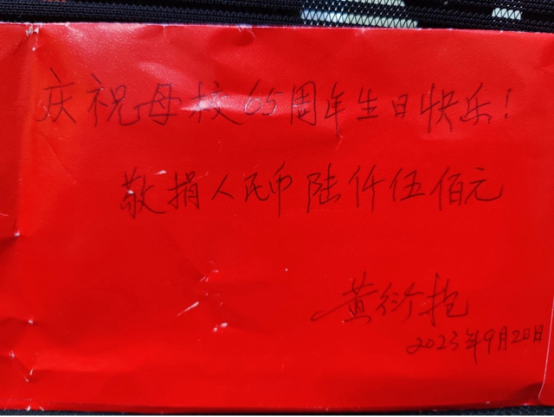 庆祝母校65周年生日快乐!
敬捐人民币陆仟伍佰元
黄衍
2023年9月20日